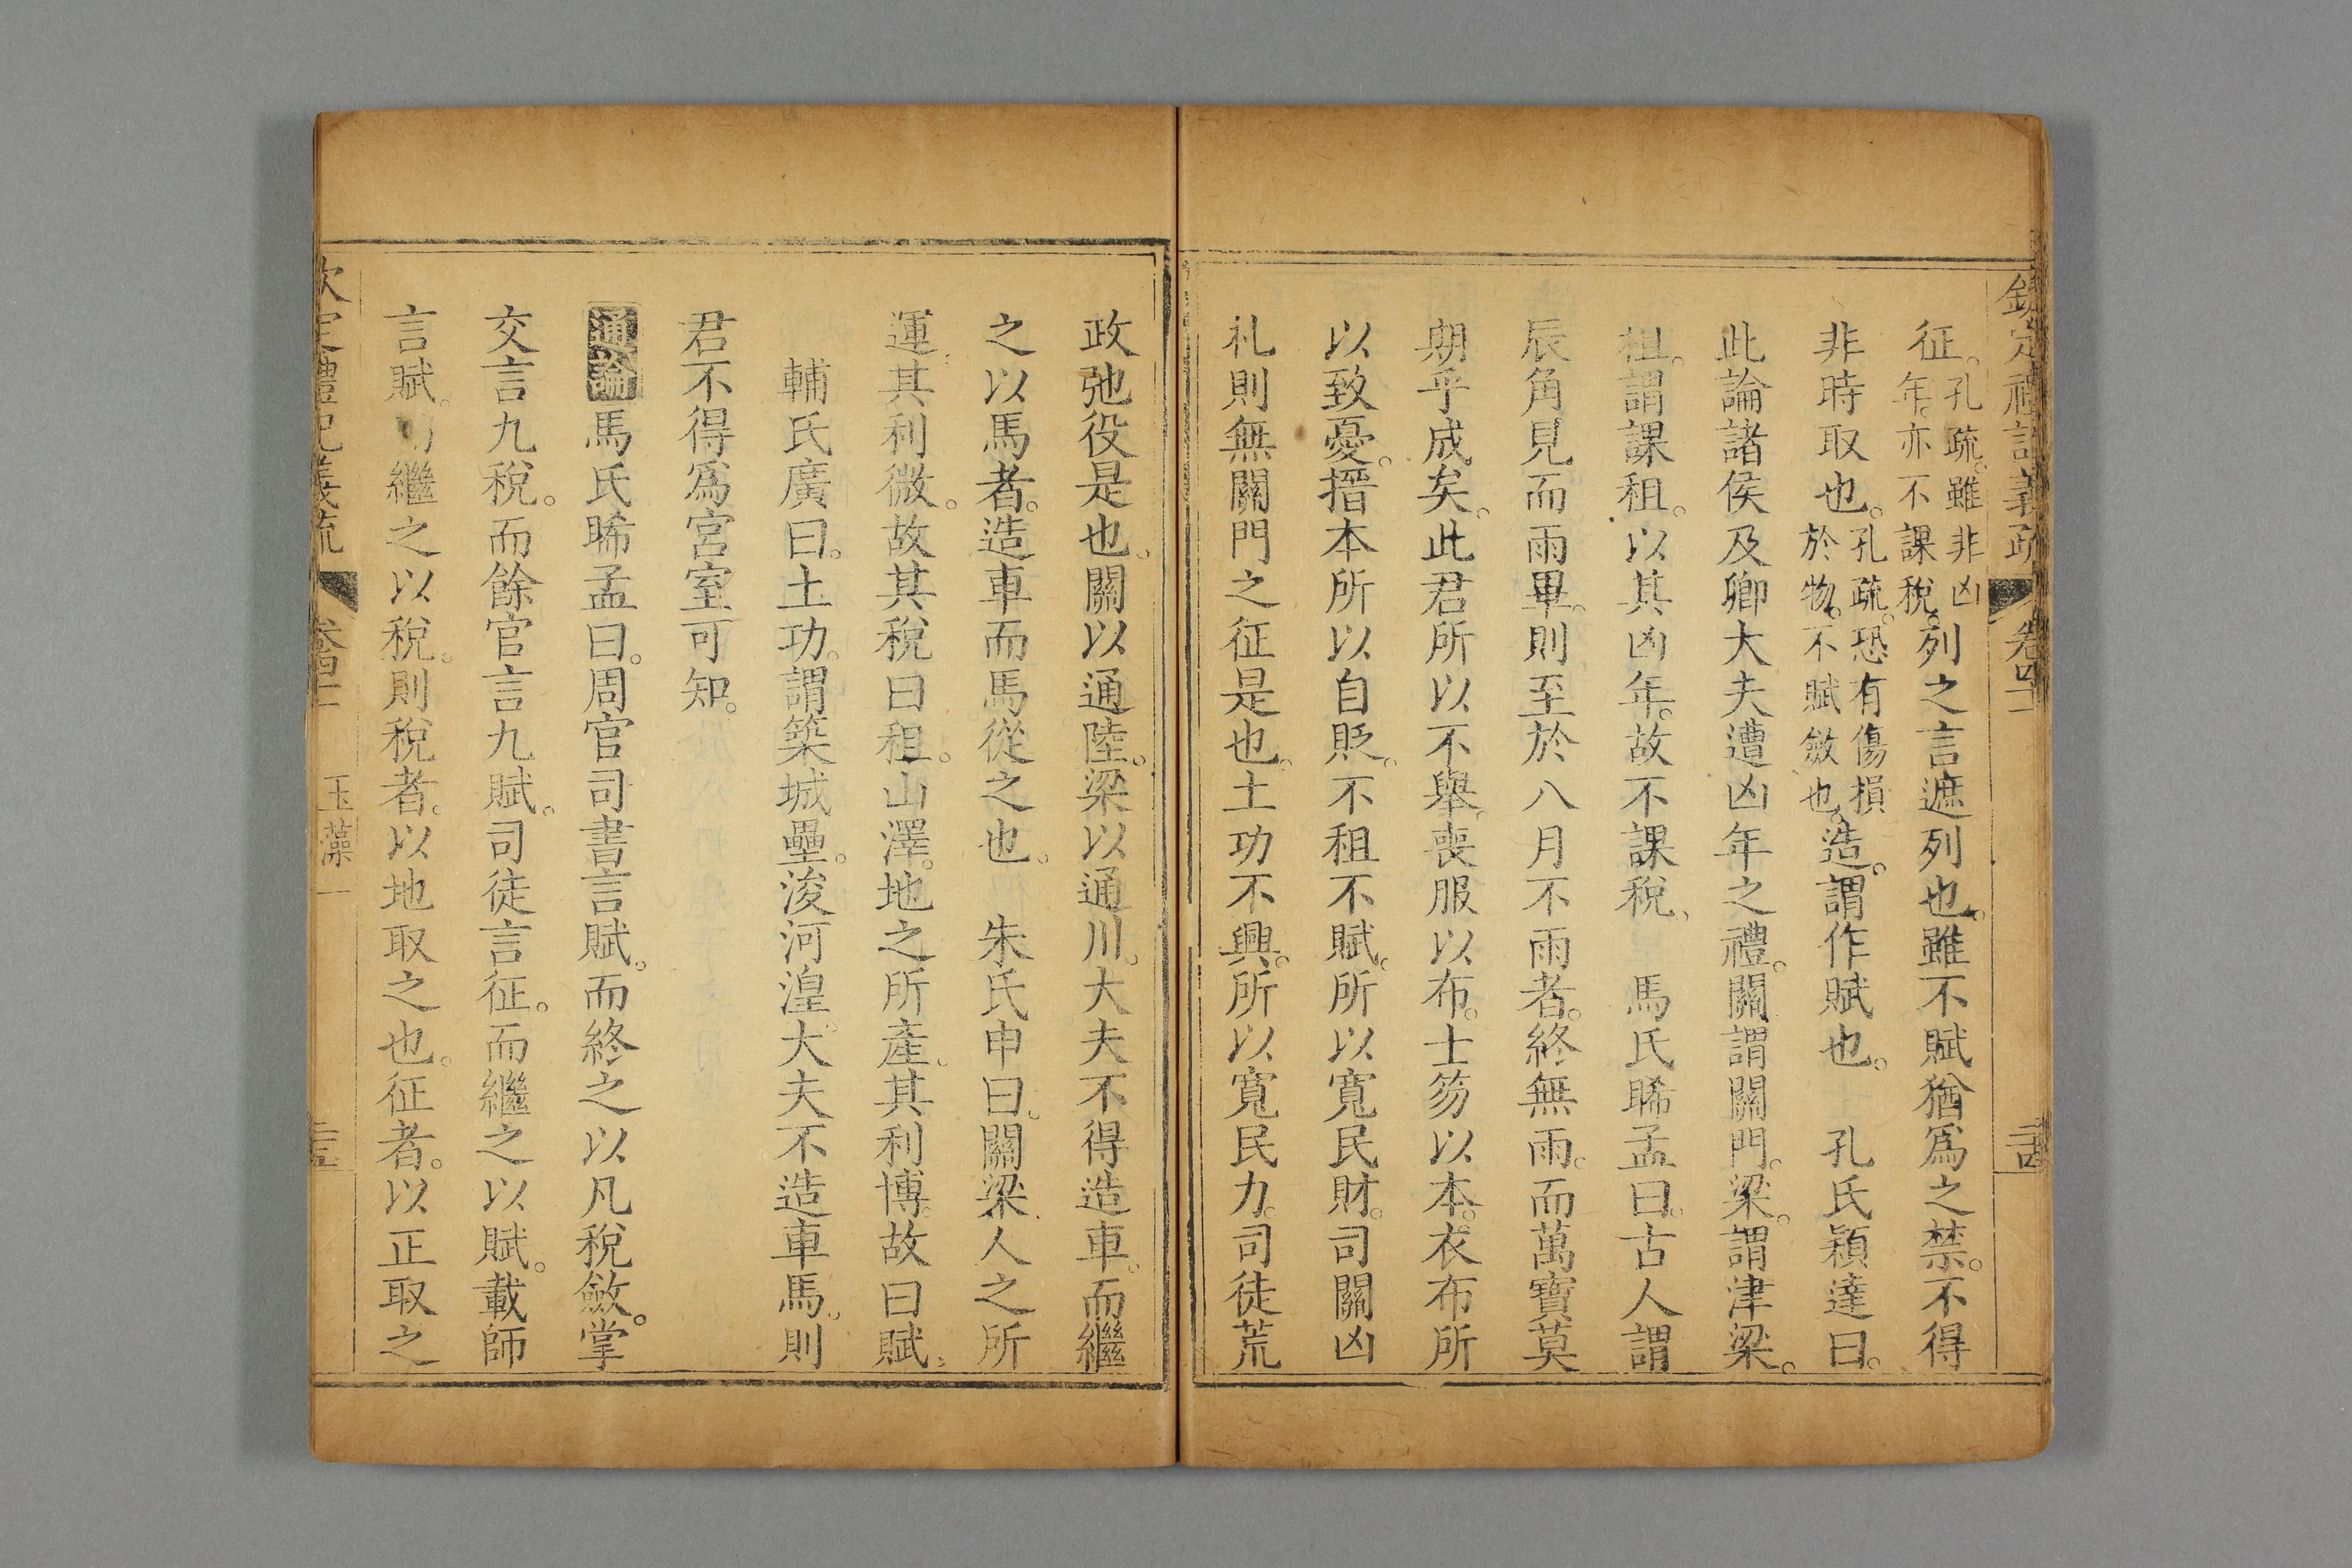 欽定禮記義疏 卷四十一 二古
征。孔疏。雖非凶年。亦不課稅。列之言遮列也。雖不賦猶爲之禁。不得
非時取也。孔疏。恐有傷損於物。不賦斂也。造。謂作賦也。 孔氏穎達曰。
此論諸侯及卿大夫遭凶年之禮。關謂關門。梁。謂津梁。
租。謂課租。以其凶年。故不課稅。 馬氏晞孟曰。古人謂
辰角見而雨畢。則至於八月不雨者。終無雨。而萬寶莫
朝乎成矣。此君所以不舉。喪服以布。士笏以本。衣布所
以致憂。搢本所以自貶。不租不賦。所以寬民財。司關凶
礼則無關門之征是也。土功不興。所以寬民力。司徒荒
政弛役是也。關以通陸。梁以通川。大夫不得造車。而繼
之以馬者。造車而馬從之也。 朱氏申曰。關梁。人之所
運。其利微。故其稅曰租。山澤。地之所產。其利博。故曰賦。
輔氏廣曰。土功。謂築城壘。浚河湟。大夫不造車馬。則
君不得爲宮室可知。
通論馬氏晞孟曰。周官司書言賦。而終之以凡稅斂。掌
交言九稅。而餘官言九賦。司徒言征。而繼之以賦。載師
言賦。而繼之以稅。則稅者。以地取之也。征者。以正取之
欽定禮記義疏 卷四十一 玉藻一 二吉